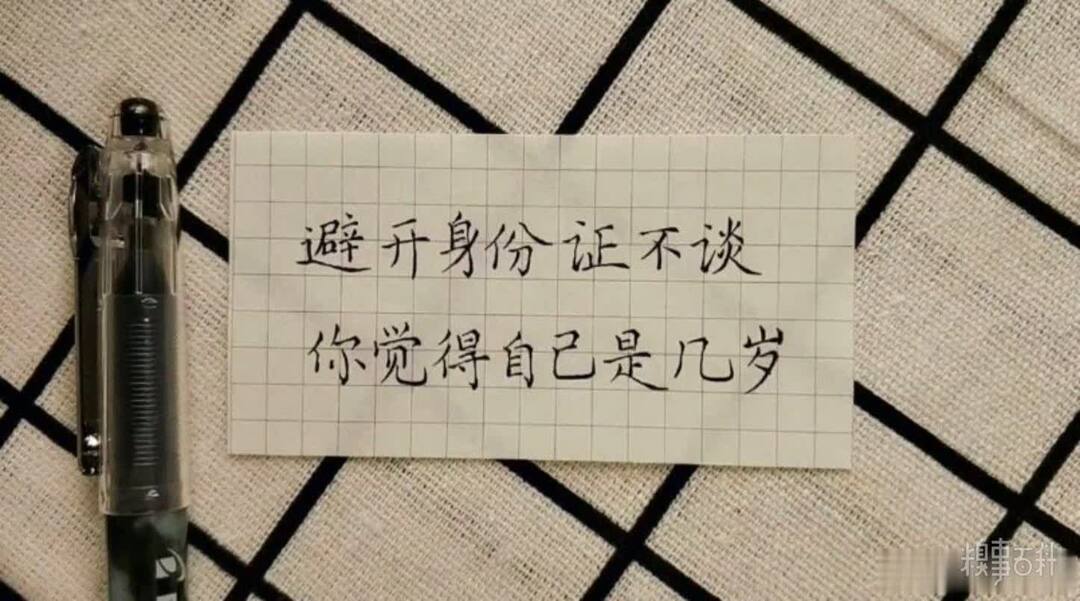 避开身份证不谈
你觉得自己是几岁
糗事百科